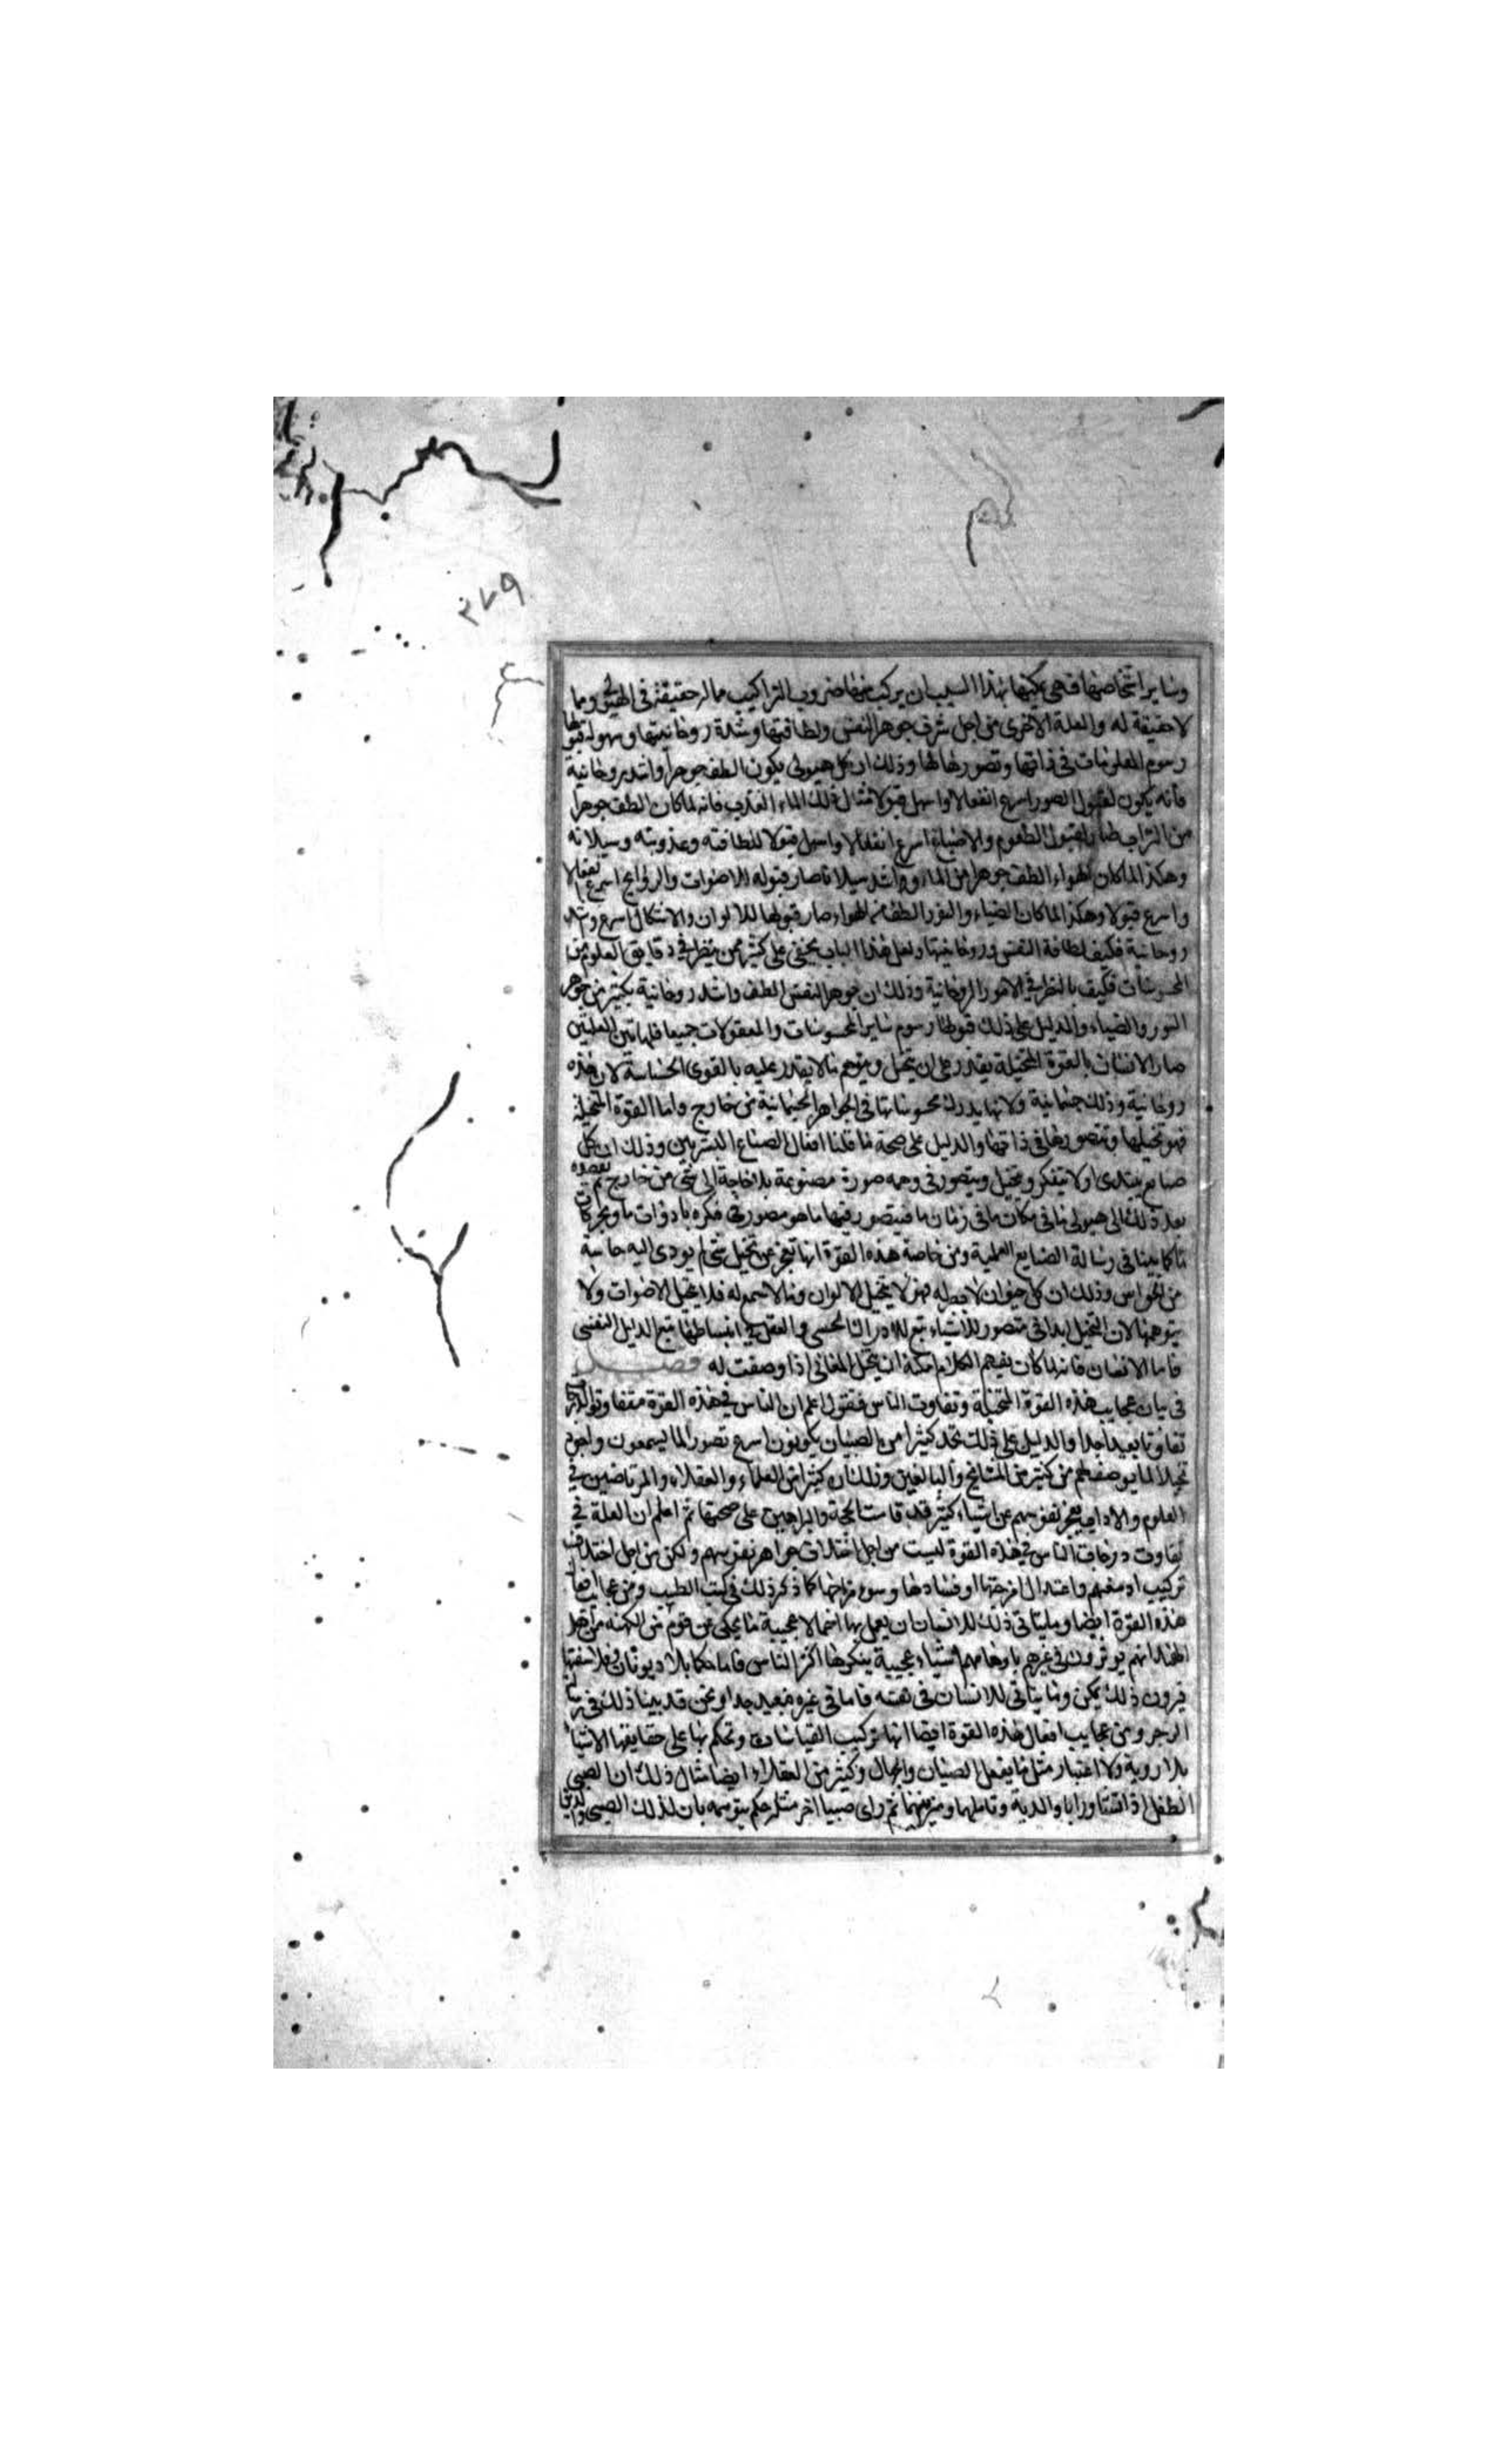 ٢٧٩
وساير اشخاصها فهي يمكنها بهذا السبب ان يركب منها ضروب التراكيب مما له حقيقة في الهيولى ومما
لا حقيقة له والعلة الاخرى من اجل شرف جوهر النفس ولطافتها وشدة روحانيتها وسهولة قبولها
رسوم المعلومات في ذاتها وتصورها لها وذلك ان كل هيولى يكون الطف جوهرا واشد روحانية
فانه يكون لقبول الصور اسرع انفعالا واسهل قبولا مثال ذلك الماء العذب فانه لما كان الطف جوهرا
من التراب صار لقبول الطعوم والاصباغ اسرع انفعالا واسهل قبولا للطافته وعذوبته وسيلانه
وهكذا لما كان الهواء الطف جوهرا من الماء واشد سيلانا صار قبوله للاصوات والروايح اسرع انفعالا
واسرع قبولا وهكذا لما كان الضياء والنور الطف من الهواء صار قبولها للالوان والاشكال اسرع واشد
روحانية فكيف لطافة النفس وروحانيتها ولعل هذا الباب يخفى على كثير ممن ينظر في دقايق العلوم من
المحسوسات فكيف بالنظر في الامور الروحانية وذلك ان جوهر النفس الطف واشد روحانية بكثير من جوهر
النور والضياء والدليل على ذلك قبولها رسوم ساير المحسوسات والمعقولات جميعا فلهاتين العلتين
صار الانسان بالقوة المتخيلة يقدر على ان يتخيل ويتوهم ما لا يقدر عليه بالقوى الحساسة لان هذه
روحانية وذلك جسمانية ولانها يدرك محسوساتها في الجواهر الجسمانية من خارج واما القوة المتخيلة
فهو تخيلها وتتصورها في ذاتها والدليل على صحة ما قلنا افعال الصناع البشريين وذلك ان كل
صانع يبتدى اولا يتفكر ويتخيل ويتصور في وهمه صورة مصنوعة بلا حاجة الى شئ من خارج ثم يقصد
بعد ذلك الى هيولى ما في مكان ما في زمان ما فيتصور فيها ما هو مصور في فكره بادوات ما وبحركات
ما كما بينا في رسالة الصنايع العملية ومن خاصة هذه القوة انها تعجز عن تخيل شئ لم يودى اليه حاسة
من الحواس وذلك ان كل حيوان لا بصر له فهو لا يتخيل الالوان وما لا سمع له فلا يتخيل الاصوات ولا
يتوهمها لان التخيل ابدا في تصور للاشياء تبع للادراك الحسى والعقل في انبساطها تبع الدليل النفسى
فاما الانسان فانه لما كان يفهم الكلام امكنه ان يتخيل المعاني اذا وصفت له فصل
في بيان عجايب هذه القوة المتخيلة وتفاوت الناس فنقول اعلم ان الناس في هذه القوة متفاوتو الدرجات
تفاوتا بعيدا جدا والدليل على ذلك تجد كثيرا من الصبيان يكونون اسرع تصورا لما يسمعون واجود
تخيلا لما يوصف لهم من كثير من المشايخ والبالغين وذلك ان كثيرا من العلماء والعقلاء والمرتاضين في
العلوم والاداب يعجز نفوسهم عن اشياء كثيرة قد قامت الحجة والبراهين على صحتها ثم اعلم ان العلة في
تفاوت درجات الناس في هذه القوة ليست من اجل اختلاف جواهر نفوسهم ولكن من اجل اختلاف
تركيب ادمغتهم واعتدال امزجتها او فسادها وسوء مزاجها كما ذكر ذلك في كتب الطب ومن عجايب افعال
هذه القوة ايضا وما يتاتى ذلك للانسان ان يعمل بها اعمالا عجيبة مما يحكى عن قوم من الكهنة من اهل
الهند انهم يوثرون في غيرهم باوهامهم اشياء عجيبة ينكرها اكثر الناس فاما حكما بلاد يونان وفلاسفتها
فيرون ذلك يمكن ومما يتاتى للانسان في نفسه فاما في غيره فبعيد جدا ونحن قد بينا ذلك في رسالة
الزجر ومن عجايب افعال هذه القوة ايضا انها تركيب القياسات وتحكم بها على حقايقها الاشياء
بلا روية ولا اعتبار مثل ما يفعل الصبيان والجهال وكثير من العقلاء ايضا مثال ذلك ان الصبى
الطفل اذا نشا وراى والديه وتاملهما وميز بينهما ثم راى صبيا اخر مثله حكم بتوهمه بان لذلك الصبى والدين